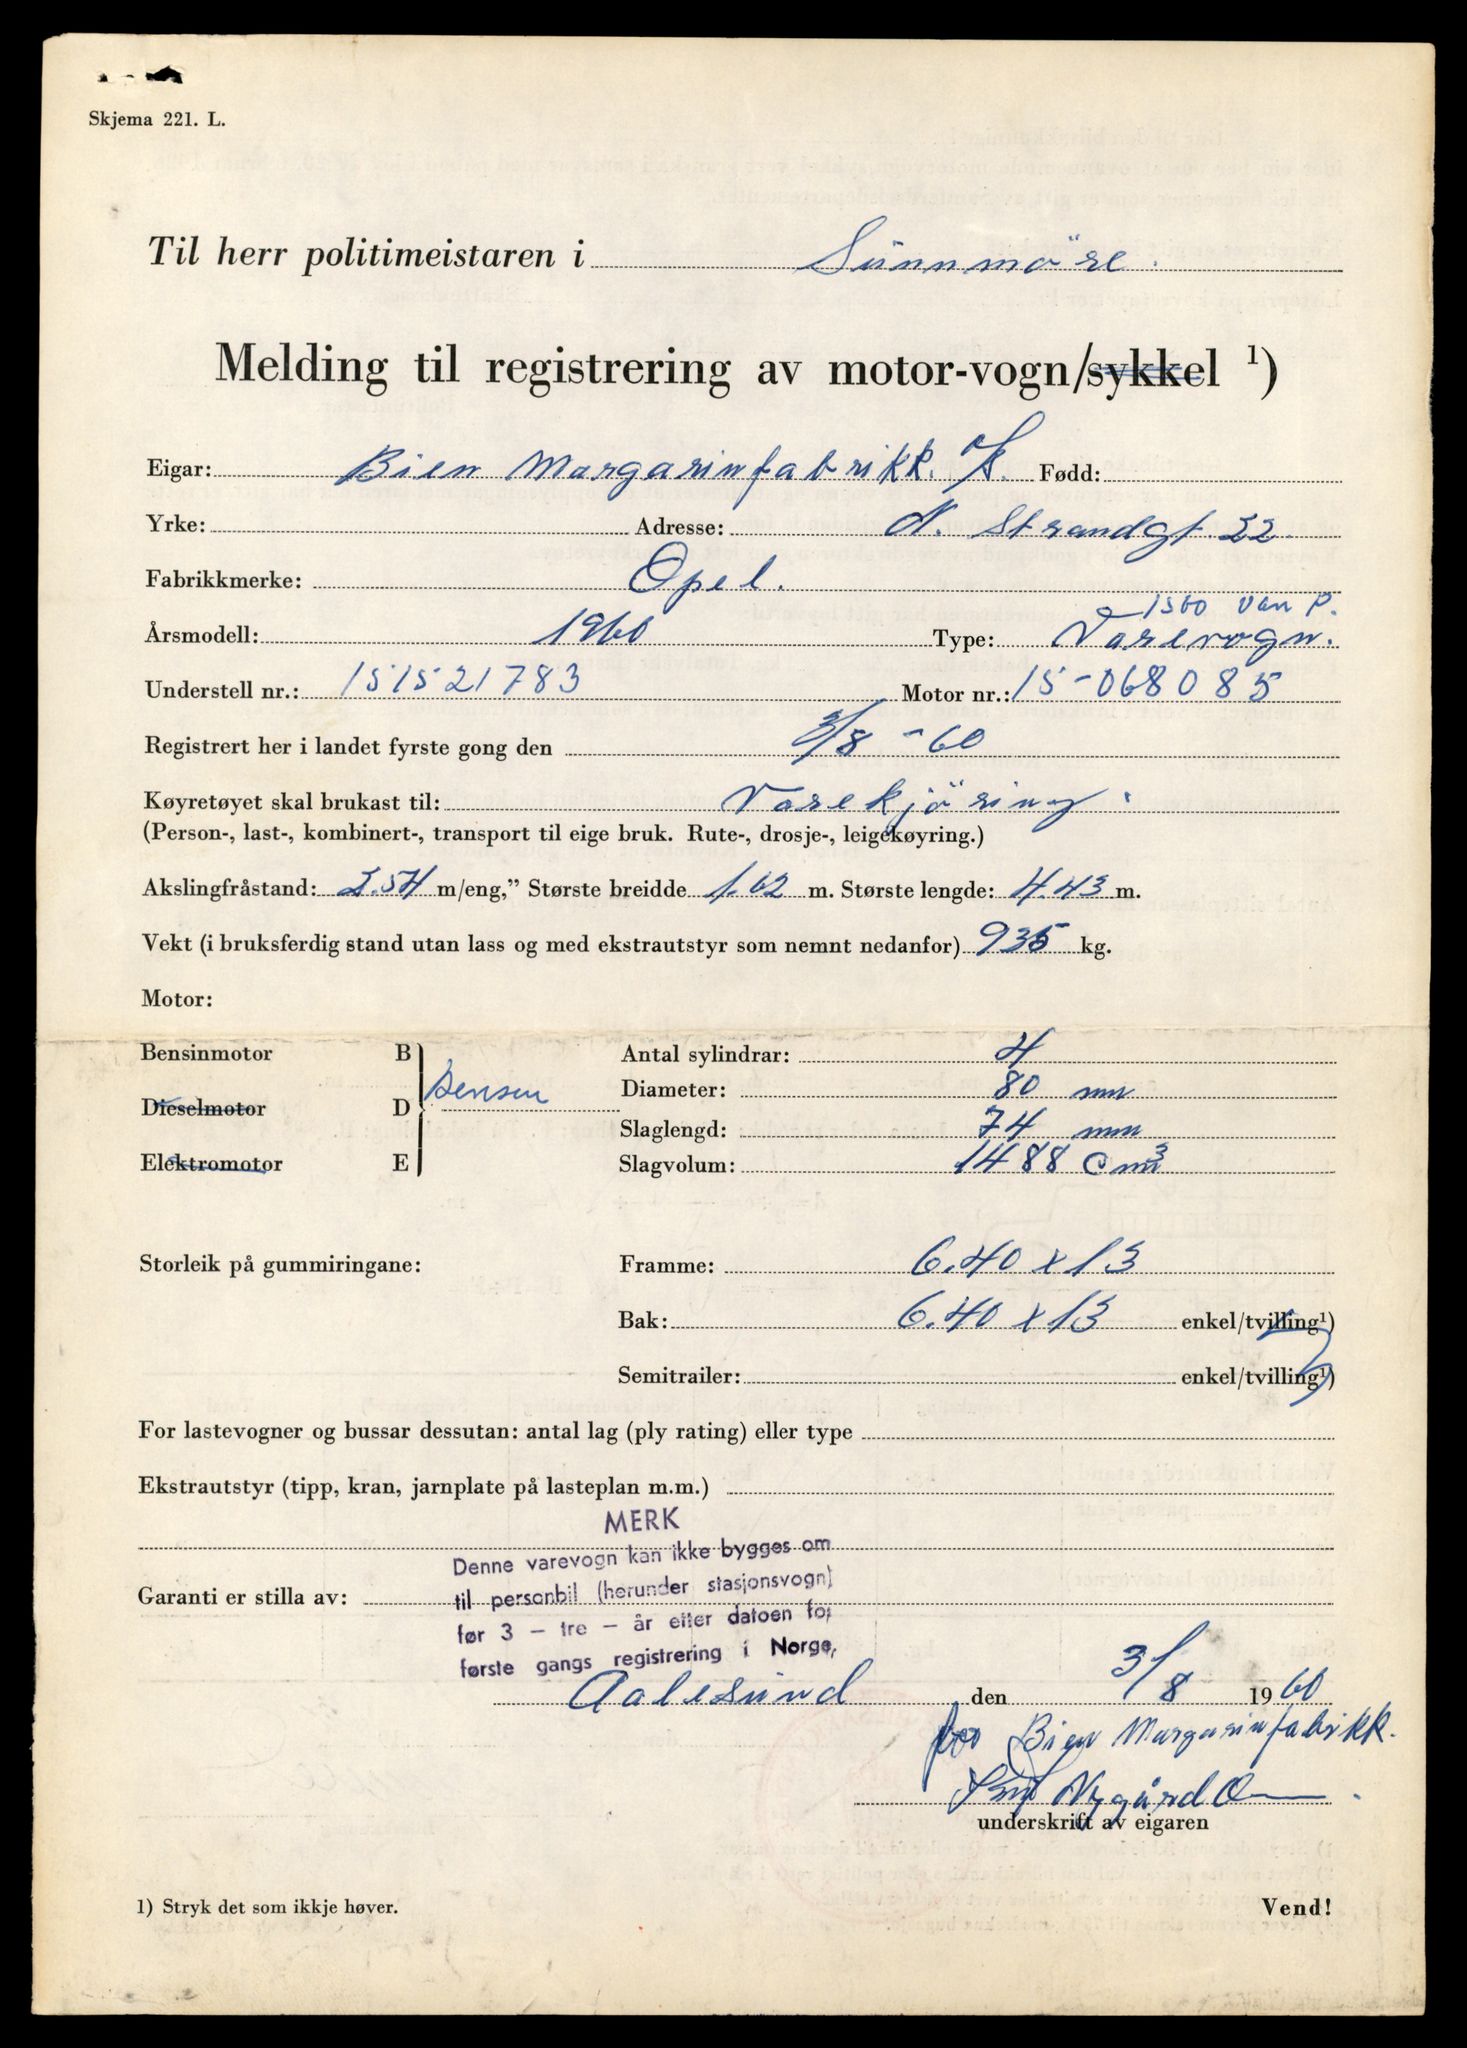 Skjema 221. L.
Til herr politimeistaren i Sünnmöre.
Melding til registrering av motor-vogn/sykkel ¹)
Eigar: Bien Margarinfabrikk. A/S. Fødd:
Yrke: Adresse: N. Strandgt. 22
Fabrikkmerke: Opel.
1500 van P.
Årsmodell: 1960 Type: Varevogn.
Understell nr.: 151521783 Motor nr.: 15-068085
Registrert her i landet fyrste gong den 3/8 - 60
Køyretøyet skal brukast til: Varekjöring.
(Person-, last-, kombinert-, transport til eige bruk. Rute-, drosje-, leigekøyring.)
Akslingfråstand: 2.54 m/eng,” Største breidde 1.62 m. Største lengde: 4.43 m.
Vekt (i bruksferdig stand utan lass og med ekstrautstyr som nemnt nedanfor) 935 kg.
Motor:
Bensinmotor B Antal sylindrar: 4
Bensin Diameter: 80 mm
Dieselmotor D
Slaglengd: 74 mm
Elektromotor E Slagvolum: 1488 cm³
Storleik på gummiringane: Framme: 6.40 x 13
Bak: 6.40 x 13 enkel/tvilling¹)
Semitrailer: enkel/tvilling¹)
For lastevogner og bussar dessutan: antal lag (ply rating) eller type
Ekstrautstyr (tipp, kran, jarnplate på lasteplan m.m.)
MERK
Denne varevogn kan ikke bygges om
Garanti er stilla av: til personbil (herunder stasjonsvogn)
før 3 — tre — år etter datoen for
første gangs registrering i Norge,
Aalesund den 3/8 1960
for Bien Margarinfabrikk.
Nygård
underskrift av eigaren
1) Stryk det som ikkje høver. Vend!